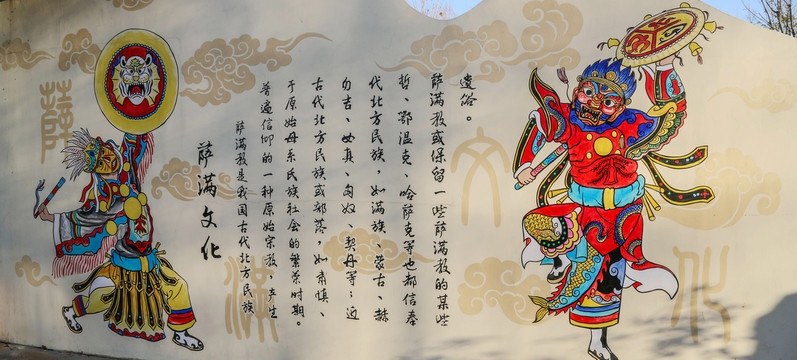 萨满文化
萨满教是我国古代北方民族
普遍信仰的一种原始宗教，产生
于原始母系氏族社会的繁荣时期。
古代北方民族或部落，如肃慎、
勿吉、女真、匈奴、契丹等；近
代北方民族，如满族、蒙古、赫
哲、鄂温克、哈萨克等也都信奉
萨满教或保留一些萨满教的某些
遗俗。
薩
滿
文
化